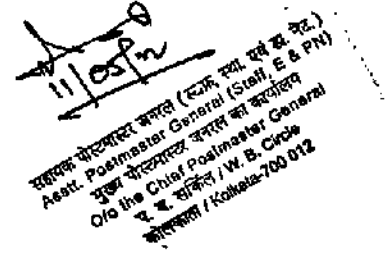 11/05/
सहायक पोस्टमास्टर जनरल (स्टाफ, स्था. एवं डा. नेट.)
Asstt. Postmaster General (Staff, E & PN)
मुख्य पोस्टमास्टर जनरल का कार्यालय
O/o the Chief Postmaster General
प. बं. सर्किल / W. B. Circle
कोलकाता / Kolkata-700 012